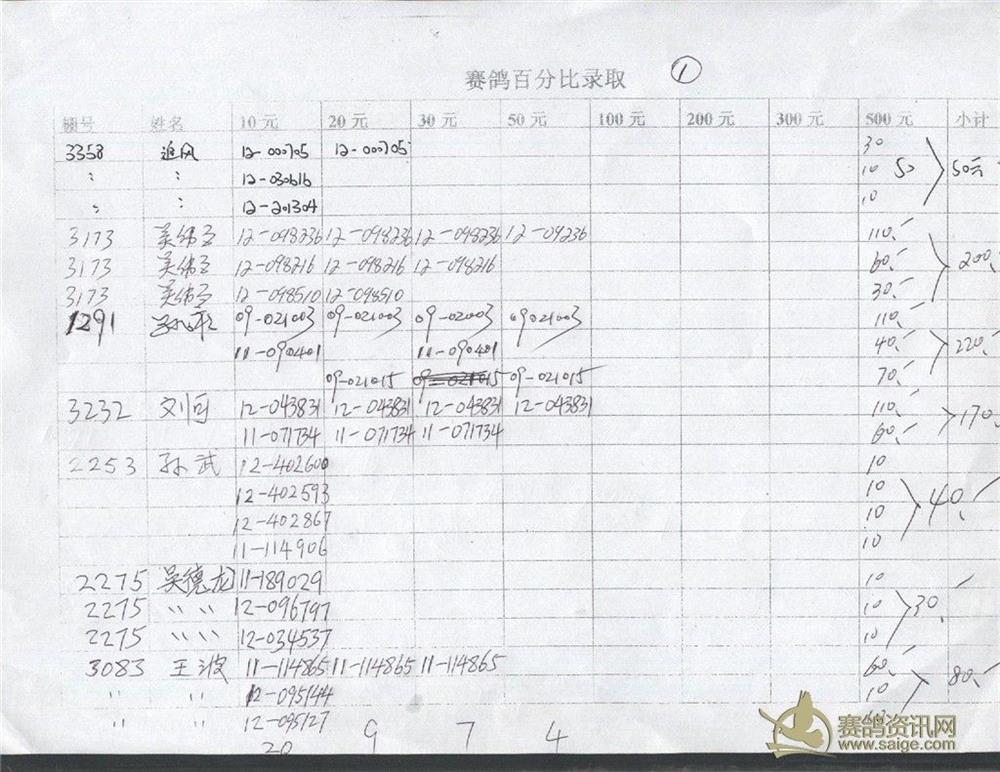 赛鸽百分比录取 ①
棚号 姓名 10元 20元 30元 50元 100元 200元 300元 500元 小计
3358 追风 12-000705 12-000705 30
〃 〃 12-030616 10 50 50元
〃 〃 12-201304 10
3173 12-098236 12-098236 12-098236 12-09236 110.-
3173 12-098216 12-098216 12-098216 60.- 200.
3173 12-098510 12-098510 30.-
1291 09-021003 09-021003 09-02003 09021003 110.-
11-090401 11-090401 40.- 220.-
09-021015 09-021015 70.-
3232 刘可 12-043831 12-043831 12-043831 12-043831 110.-
11-071734 11-071734 11-071734 60.- 170.-
2253 孙武 12-402600 10
12-402593 10
12-402867 10 40.-
11-114906 10
2275 吴德龙 11-189029 10
2275 〃 〃 12-096797 10 30.-
2275 〃 〃 12-034537 10
3083 王波 11-114865 11-114865 11-114865 60.-
〃 〃 12-095144 10 80.-
〃 〃 12-095127
20 9 7 4
赛鸽资讯网
www.saige.com